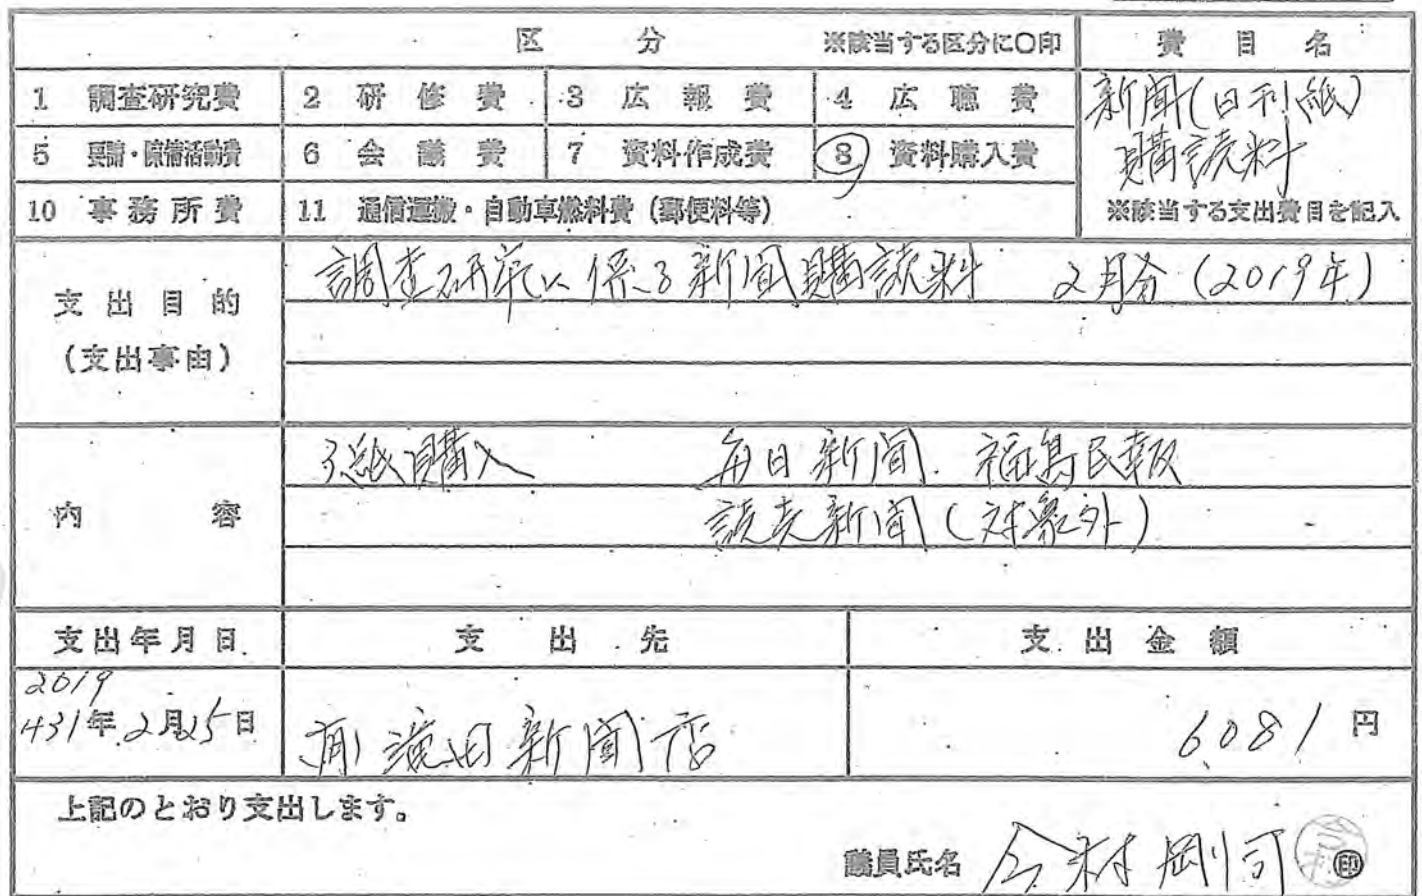 区 分 ※該当する区分に○印 費目名
1 調査研究費 2 研修費 3 広報費 4 広聴費
新聞(日刊紙)
購読料
5 要請・陳情活動費 6 会議費 7 資料作成費 8 資料購入費
10 事務所費 11 通信運搬・自動車燃料費(郵便料等)
※該当する支出費目を記入
支出目的
(支出事由)
調査研究に係る新聞購読料 2月分(2019年)
内容
3紙購入 毎日新聞. 福島民報
読売新聞(対象外)
支出年月日 支出先 支出金額
2019
H31年2月25日
新聞店
6081円
上記のとおり支出します。
議員氏名 今村剛司 印